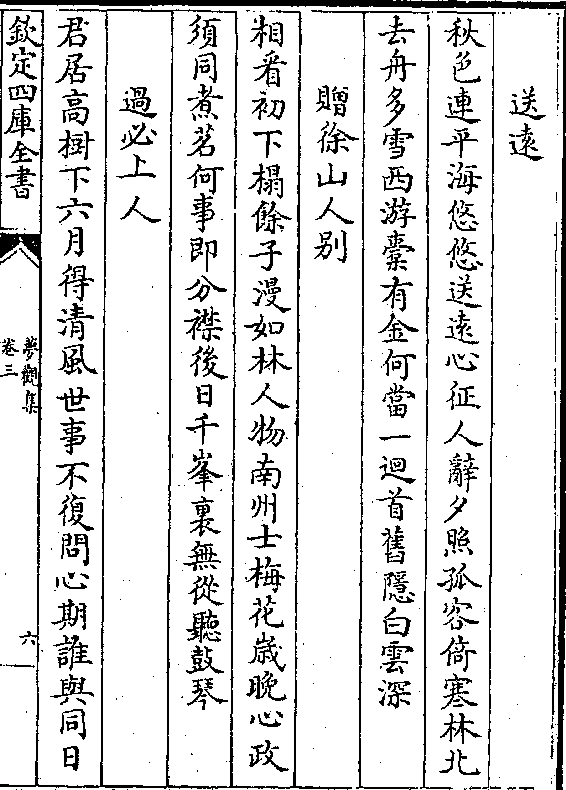 送遠
秋色連平海悠悠送遠心征人辭夕照孤客倚寒林北
去舟多雪西游橐有金何當一迴首舊隱白雲深
贈徐山人别
相看初下榻餘子漫如林人物南州士梅花歲晚心政
須同煮茗何事即分襟後日千峯裏無從聽鼓琴
過必上人
君居高樹下六月得清風世事不復問心期誰與同日
欽定四庫全書
夢觀集
卷三
六